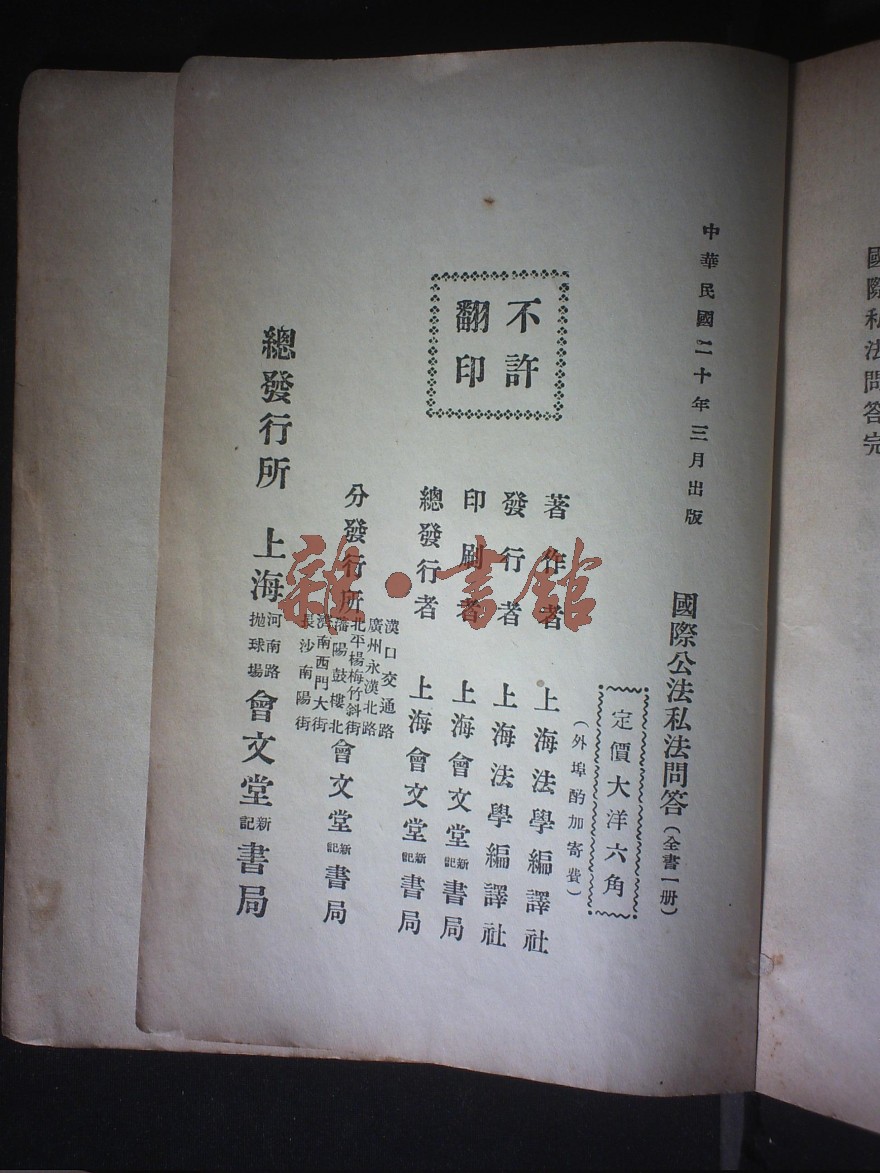 國際私法問答完
中華民國二十年三月出版
國際公法私法問答(全書一册)
定價大洋六角
(外埠酌加寄費)
不許
翻印
著作者 上海法學編譯社
發行者 上海法學編譯社
印刷者 上海會文堂新記書局
總發行者 上海會文堂新記書局
分發行所
漢口交通路
廣州永漢北路
北平楊梅竹斜街
瀋陽鼓樓北
濟南西門大街
長沙南陽街
會文堂新記書局
總發行所 上海
河南路
拋球場
會文堂新記書局
雜·書館